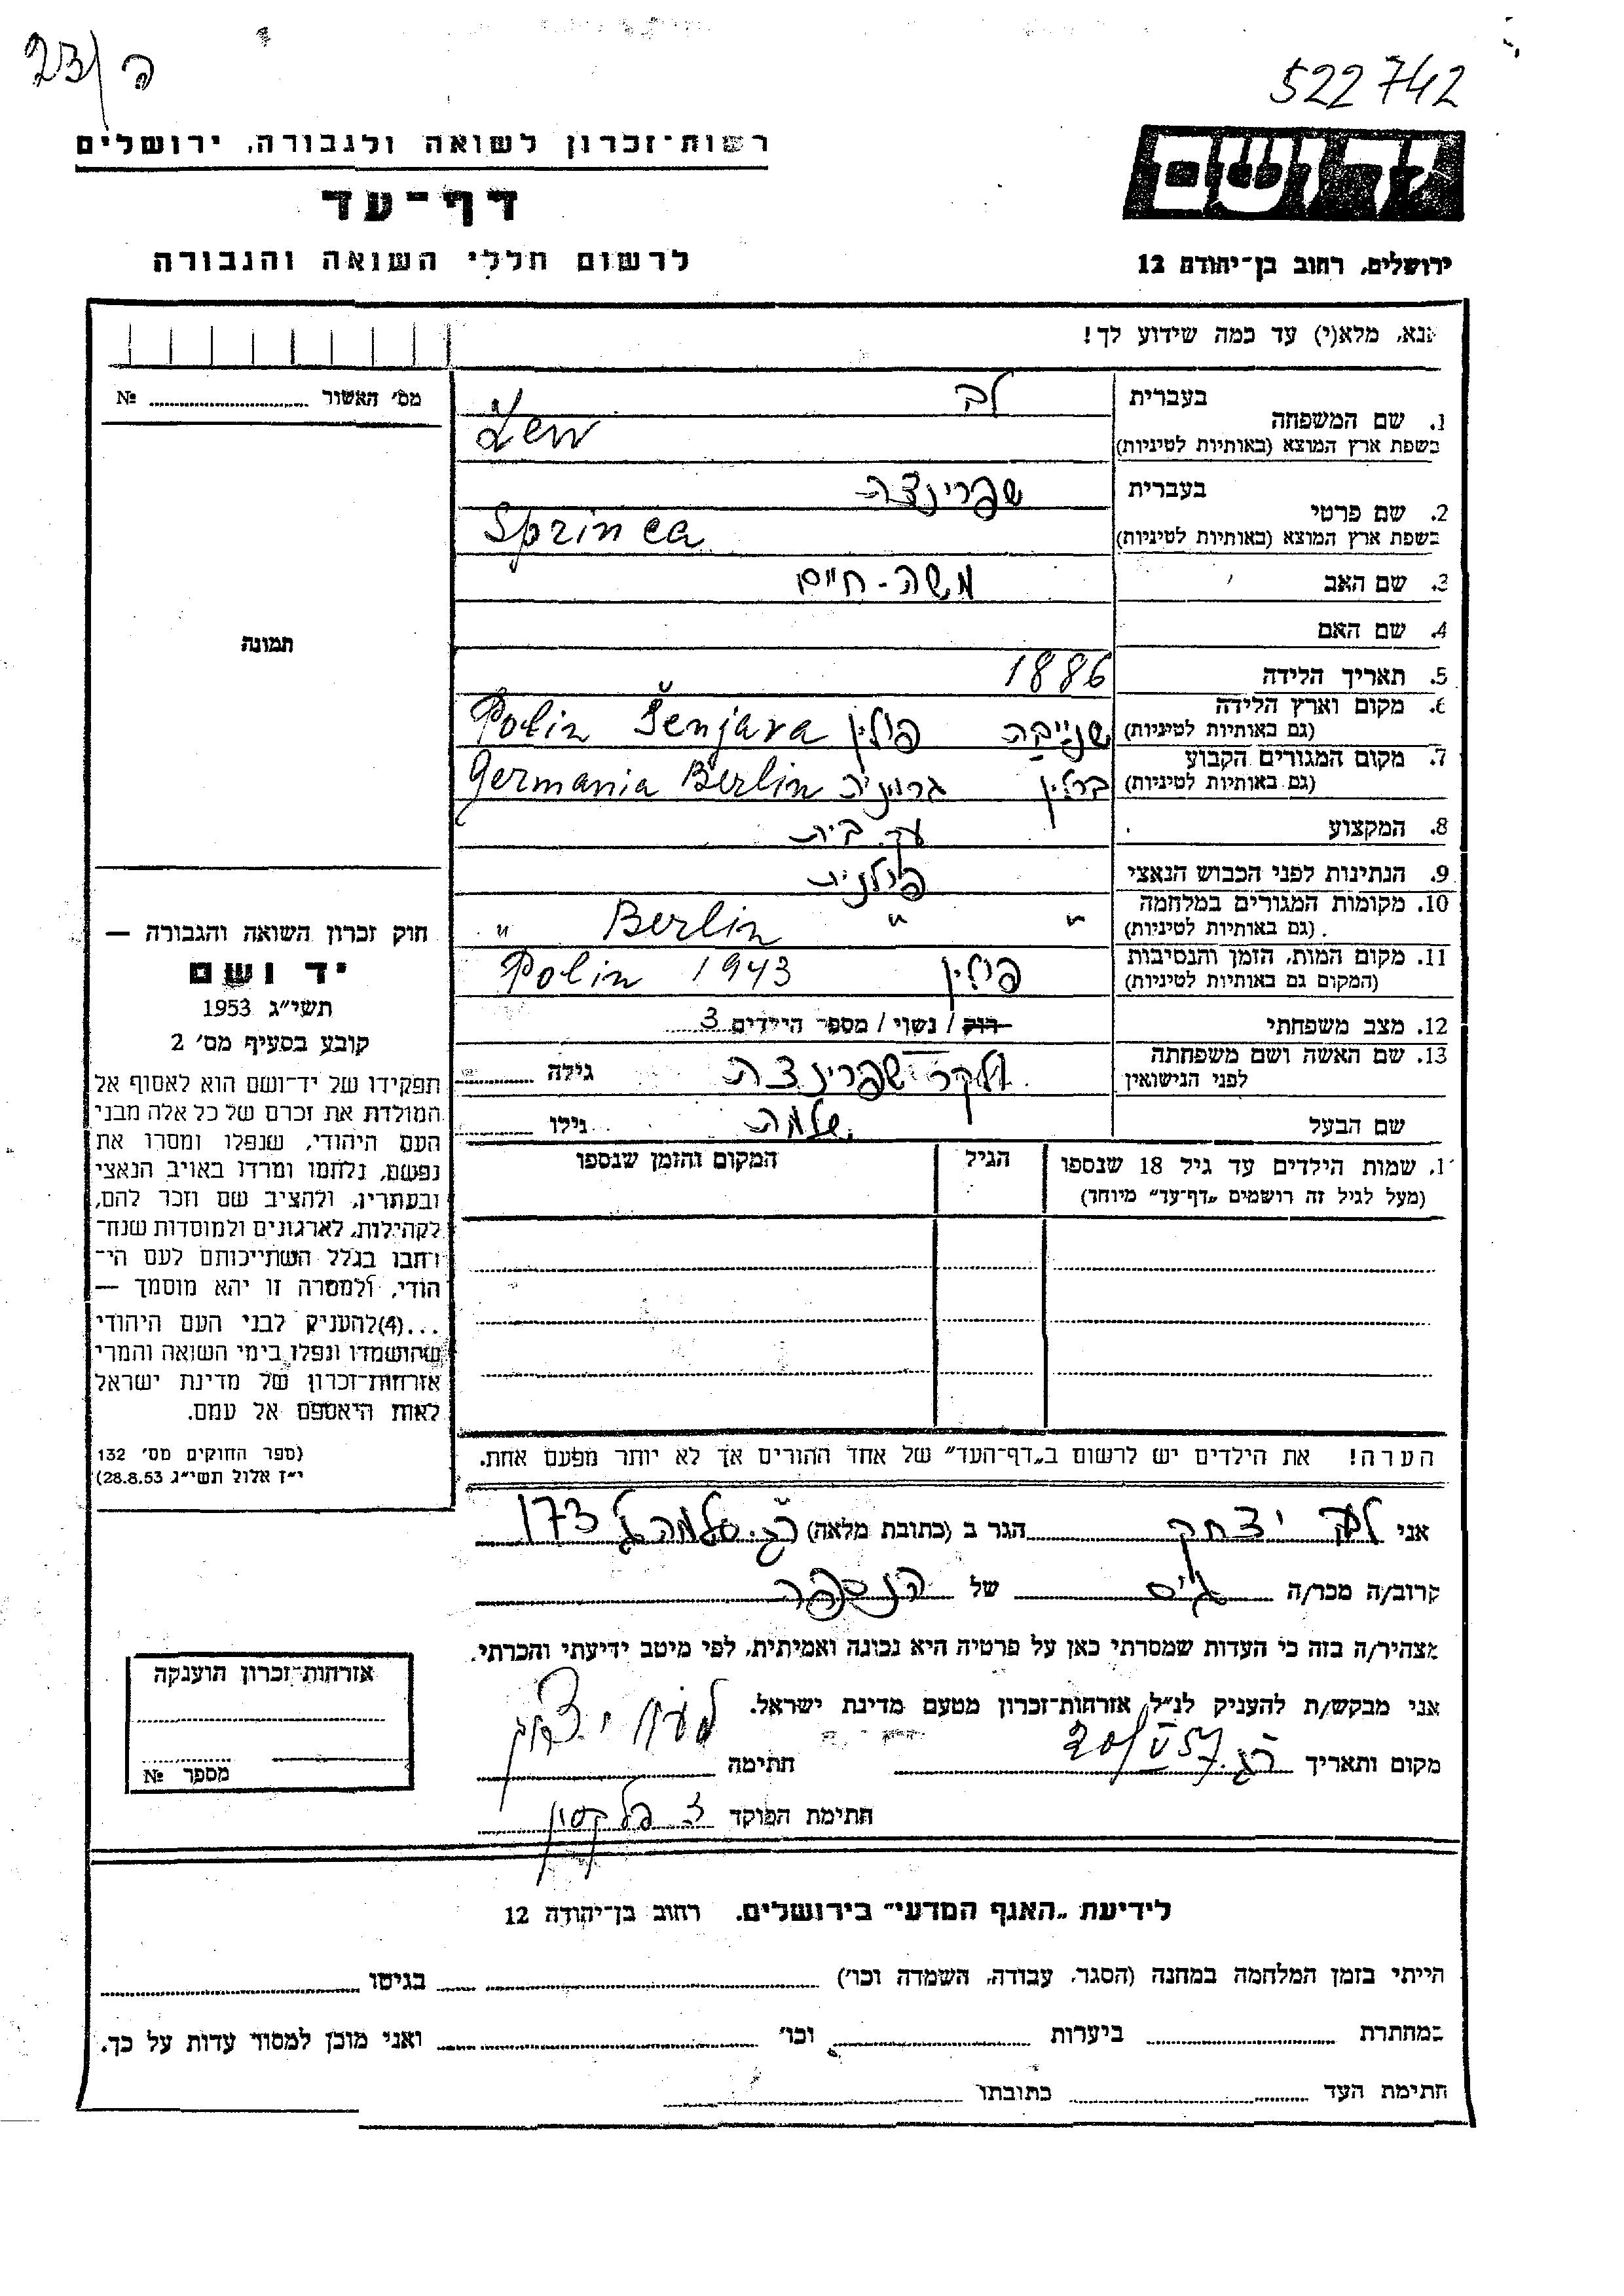 23/ה
522742
רשות-זכרון לשואה ולגבורה, ירושלים
דף-עד
לרשום חללי השואה והגבורה
יד ושם
ירושלים, רחוב בן-יהודה 12
נא, מלא(י) עד כמה שידוע לך!
מס׳ האשור № ........
1. שם המשפחה
בעברית לב
בשפת ארץ המוצא (באותיות לטיניות) Lew
2. שם פרטי
בעברית שפרינצה
בשפת ארץ המוצא (באותיות לטיניות) Sprinca
3. שם האב משה-חיים
4. שם האם
תמונה
5. תאריך הלידה 1886
6. מקום וארץ הלידה
(גם באותיות לטיניות) פולין Šenjava Polin
7. מקום המגורים הקבוע
(גם באותיות לטיניות) ברלין גרמניה Germania Berlin
8. המקצוע עק. בית
9. הנתינות לפני הכבוש הנאצי פולנית
10. מקומות המגורים במלחמה
(גם באותיות לטיניות) " " Berlin "
11. מקום המות, הזמן והנסיבות
(המקום גם באותיות לטיניות) פולין Polin 1943
12. מצב משפחתי רוק / נשוי / מספר הילדים 3
13. שם האשה ושם משפחתה
לפני הנישואין שפרינצה גילה ........
שם הבעל שלמה גילו ........
חוק זכרון השואה והגבורה —
יד ושם
תשי״ג 1953
קובע בסעיף מס׳ 2
תפקידו של יד-ושם הוא לאסוף אל
המולדת את זכרם של כל אלה מבני
העם היהודי, שנפלו ומסרו את
נפשם, נלחמו ומרדו באויב הנאצי
ובעוזריו, ולהציב שם וזכר להם,
לקהילות, לארגונים ולמוסדות שנח-
רחבו בגלל השתייכותם לעם הי-
הודי, ולמטרה זו יהא מוסמך —
...(4)להעניק לבני העם היהודי
שהושמדו ונפלו בימי השואה והמרי
אזרחות-זכרון של מדינת ישראל
לאות היאספם אל עמם.
(ספר החוקים מס׳ 132
י״ז אלול תשי״ג 28.8.53)
1. שמות הילדים עד גיל 18 שנספו
(מעל לגיל זה רושמים „דף-עד״ מיוחד)
הגיל
המקום והזמן שנספו
הערה! את הילדים יש לרשום ב„דף-העד״ של אחד ההורים אך לא יותר מפעם אחת.
אני יצחק הגר ב (כתובת מלאה) 173
קרוב/ה מכר/ה גיס של הנספה
מצהיר/ה בזה כי העדות שמסרתי כאן על פרטיה היא נכונה ואמיתית, לפי מיטב ידיעתי והכרתי.
אני מבקש/ת להעניק לנ״ל אזרחות-זכרון מטעם מדינת ישראל.
מקום ותאריך ר.ג. 20/V 57 חתימה
חתימת הפוקד
אזרחות-זכרון הוענקה
מספר №
לידיעת „האגף המדעי״ בירושלים, רחוב בן-יהודה 12
הייתי בזמן המלחמה במחנה (הסגר, עבודה, השמדה וכו׳) ........ בגיטו ........
במחתרת ........ ביערות ........ וכו׳ ........ ואני מוכן למסור עדות על כך.
חתימת העד ........ כתובתו ........